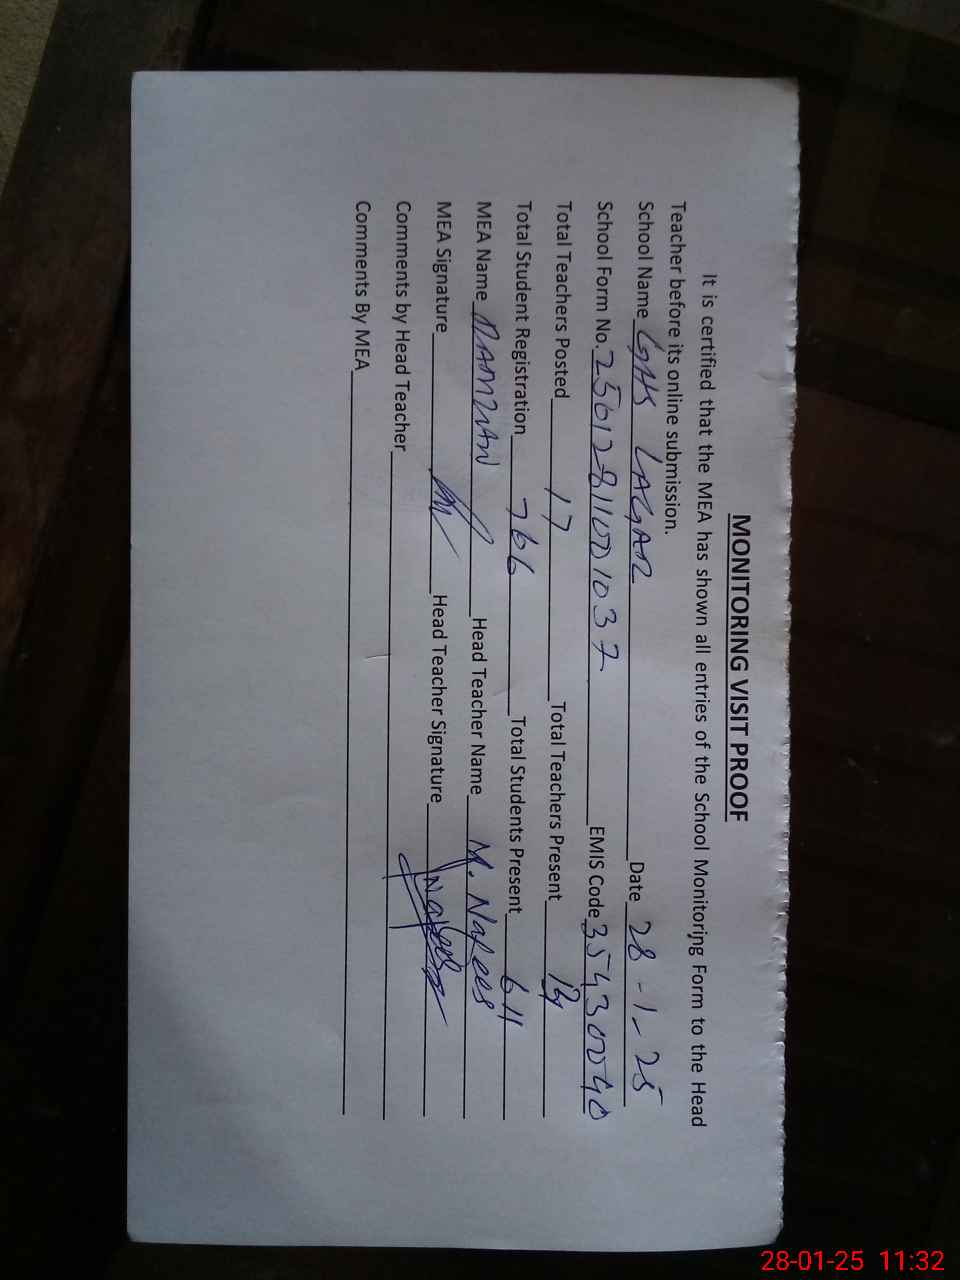 MONITORING VISIT PROOF
It is certified that the MEA has shown all entries of the School Monitoring Form to the Head
Teacher before its online submission.
School Name GHS LAGAR Date 28-1-25
School Form No. 25012811001037 EMIS Code 35430040
Total Teachers Posted 17 Total Teachers Present
Total Student Registration 766 Total Students Present 611
MEA Name RAMZAN Head Teacher Name M. Nafees
MEA Signature Head Teacher Signature Nafees
Comments by Head Teacher
Comments By MEA
28-01-25 11:32